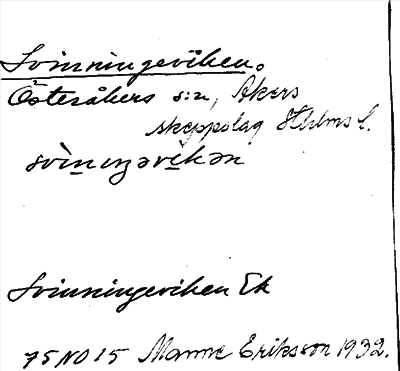 Svinningeviken.
Österåkers s:n, Åkers
skeppslag Sthlms l.
svìnıŋəvìkən
Svinningeviken Ek
75 NO 15 Manne Eriksson 1932.